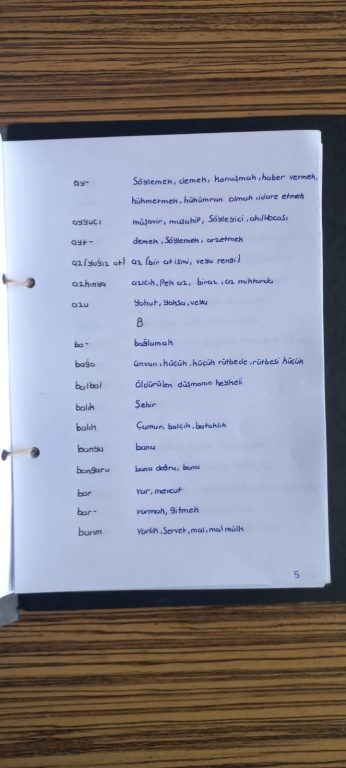 ay- Söylemek, demek, konuşmak, haber vermek,
hükmetmek, hükümran olmak, idare etmek
ayguçı müşavir, musahip, Söyleyici, akıl hocası
ayt- demek, Söylemek, arzetmek
az (yağız at) az (bir at ismi, veya rengi)
azkınya azıcık, Pek az, biraz, az miktarda
azu Yahut, yoksa, veya
B
ba- bağlamak
baga ünvan, küçük, küçük rütbede, rütbesi küçük
balbal Öldürülen düşmanın heykeli
balık Şehir
balık Çamur, balçık, bataklık
banga bana
bangaru bana doğru, bana
bar var, mevcut
bar- varmak, gitmek
barım Varlık, Servet, mal, mal mülk
5